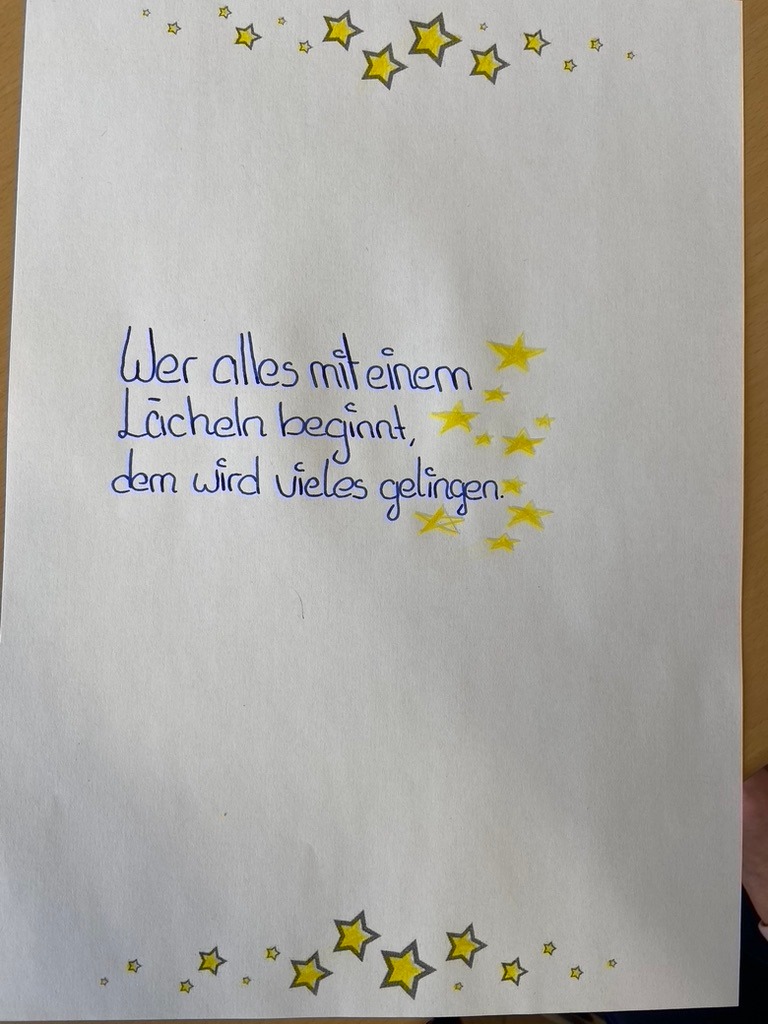 Wer alles mit einem
Lächeln beginnt,
dem wird vieles gelingen.